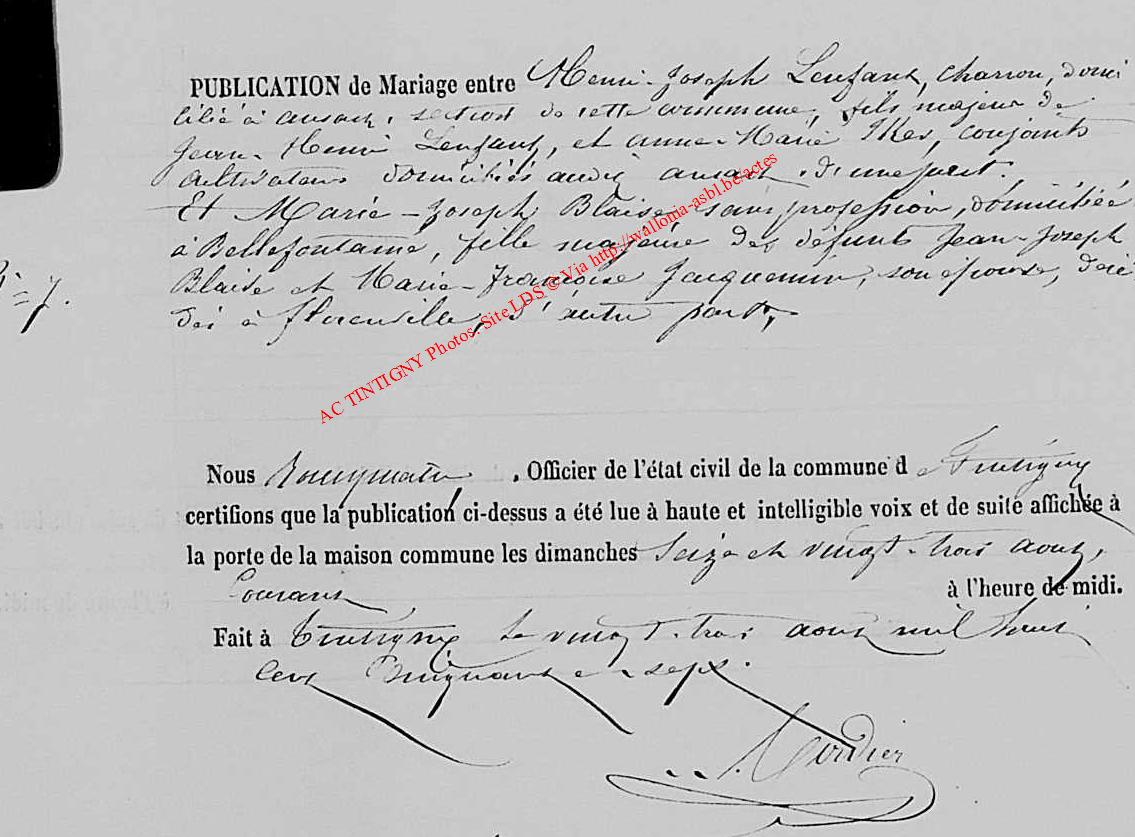 PUBLICATION de Mariage entre Henri-Joseph Lenfant, charron, domi
cilié à ansart, section de cette commune, fils majeur de
Jean-Henri Lenfant, et anne-Marie Ikes, conjoints
cultivateurs domiciliés audit ansart, d'une part.
Et Marie-Joseph Blaise, sans profession, domiciliée
à Bellefontaine, fille majeure des défunts Jean-Joseph
Blaise et Marie-Françoise Jacquemin, son épouse, décé
dés à florenville, d'autre part,
N° 7.
AC TINTIGNY Photos: Site LDS © Via http://wallonia-asbl.be/actes
Nous Bourgmestre, Officier de l'état civil de la commune d e Tintigny
certifions que la publication ci-dessus a été lue à haute et intelligible voix et de suite affichée à
la porte de la maison commune les dimanches Seize et vingt-trois aout,
Courant, à l'heure de midi.
Fait à Tintigny le vingt-trois aout mil huit
Cent Cinquante-sept.